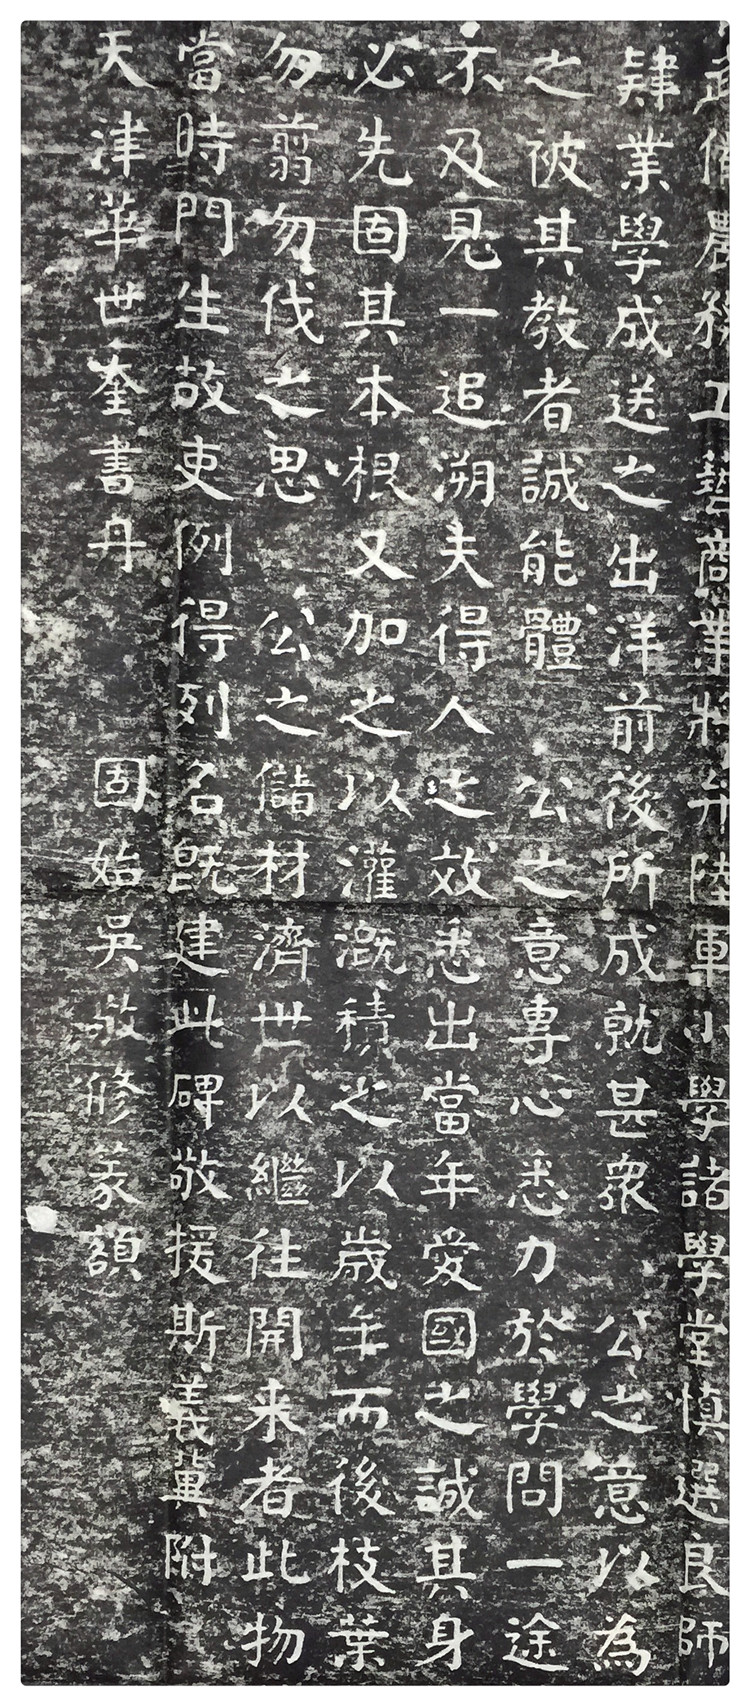 武備農務工藝商業將弁陸軍小學諸學堂慎選良師
肄業學成送之出洋前後所成就甚衆 公之意以為
之被其教者誠能體 公之意專心悉力於學問一途
不及見一追溯夫得人之效悉出當年愛國之誠其身
必先固其本根又加之以灌溉積之以歲年而後枝葉
勿翦勿伐之思 公之儲材濟世以繼往開来者此物
當時門生故吏例得列名旣建此碑敬援斯義冀附
天津華世奎書丹 固始吳敬修篆額